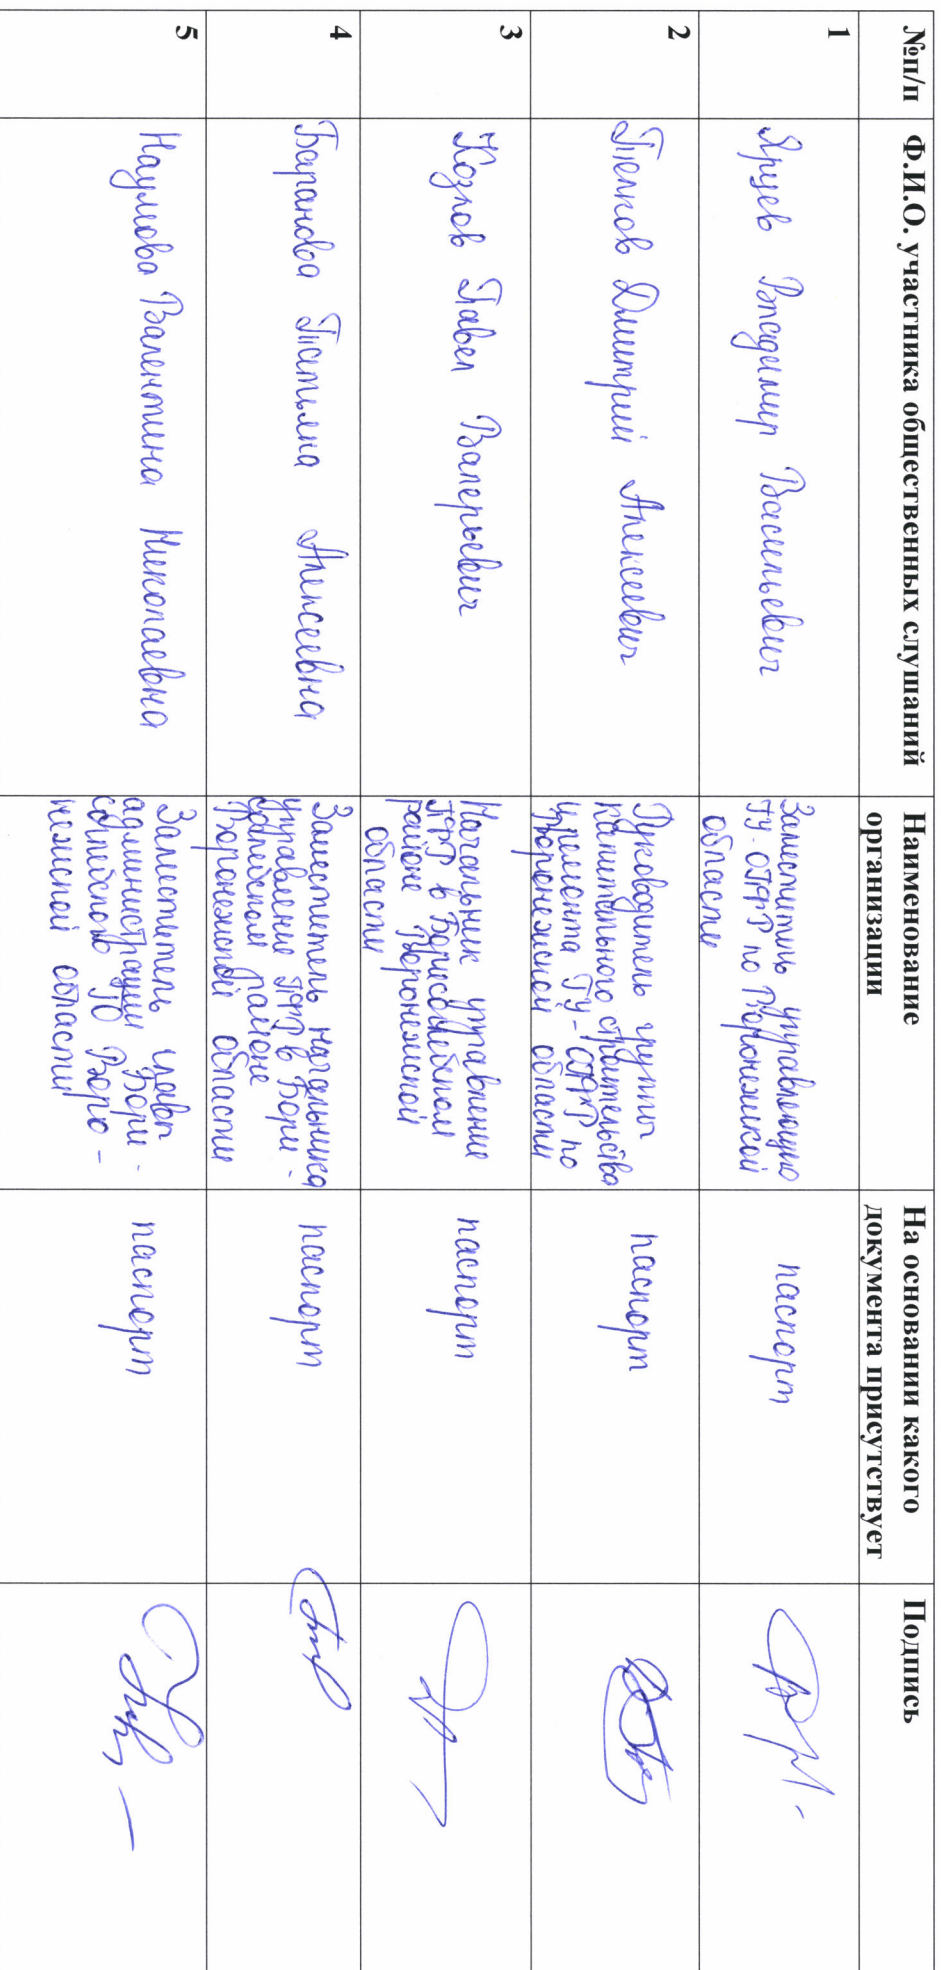 №п/п
Ф.И.О. участника общественных слушаний
Наименование
организации
На основании какого
документа присутствует
Подпись
1
Ярцев Владимир Васильевич
Заместитель управляющего
ГУ-ОПФР по Воронежской
области
паспорт
2
Попков Дмитрий Алексеевич
Руководитель группы
капитального строительства
и ремонта ГУ-ОПФР по
Воронежской области
паспорт
3
Козлов Павел Валерьевич
Начальник управление
ПФР в Борисоглебском
районе Воронежской
области
паспорт
4
Баранова Татьяна Алексеевна
Заместитель начальника
управление ПФР в Бори-
соглебском районе
Воронежской области
паспорт
5
Наумова Валентина Николаевна
Заместитель главы
администрации Бори-
соглебского ГО Воро-
нежской области
паспорт